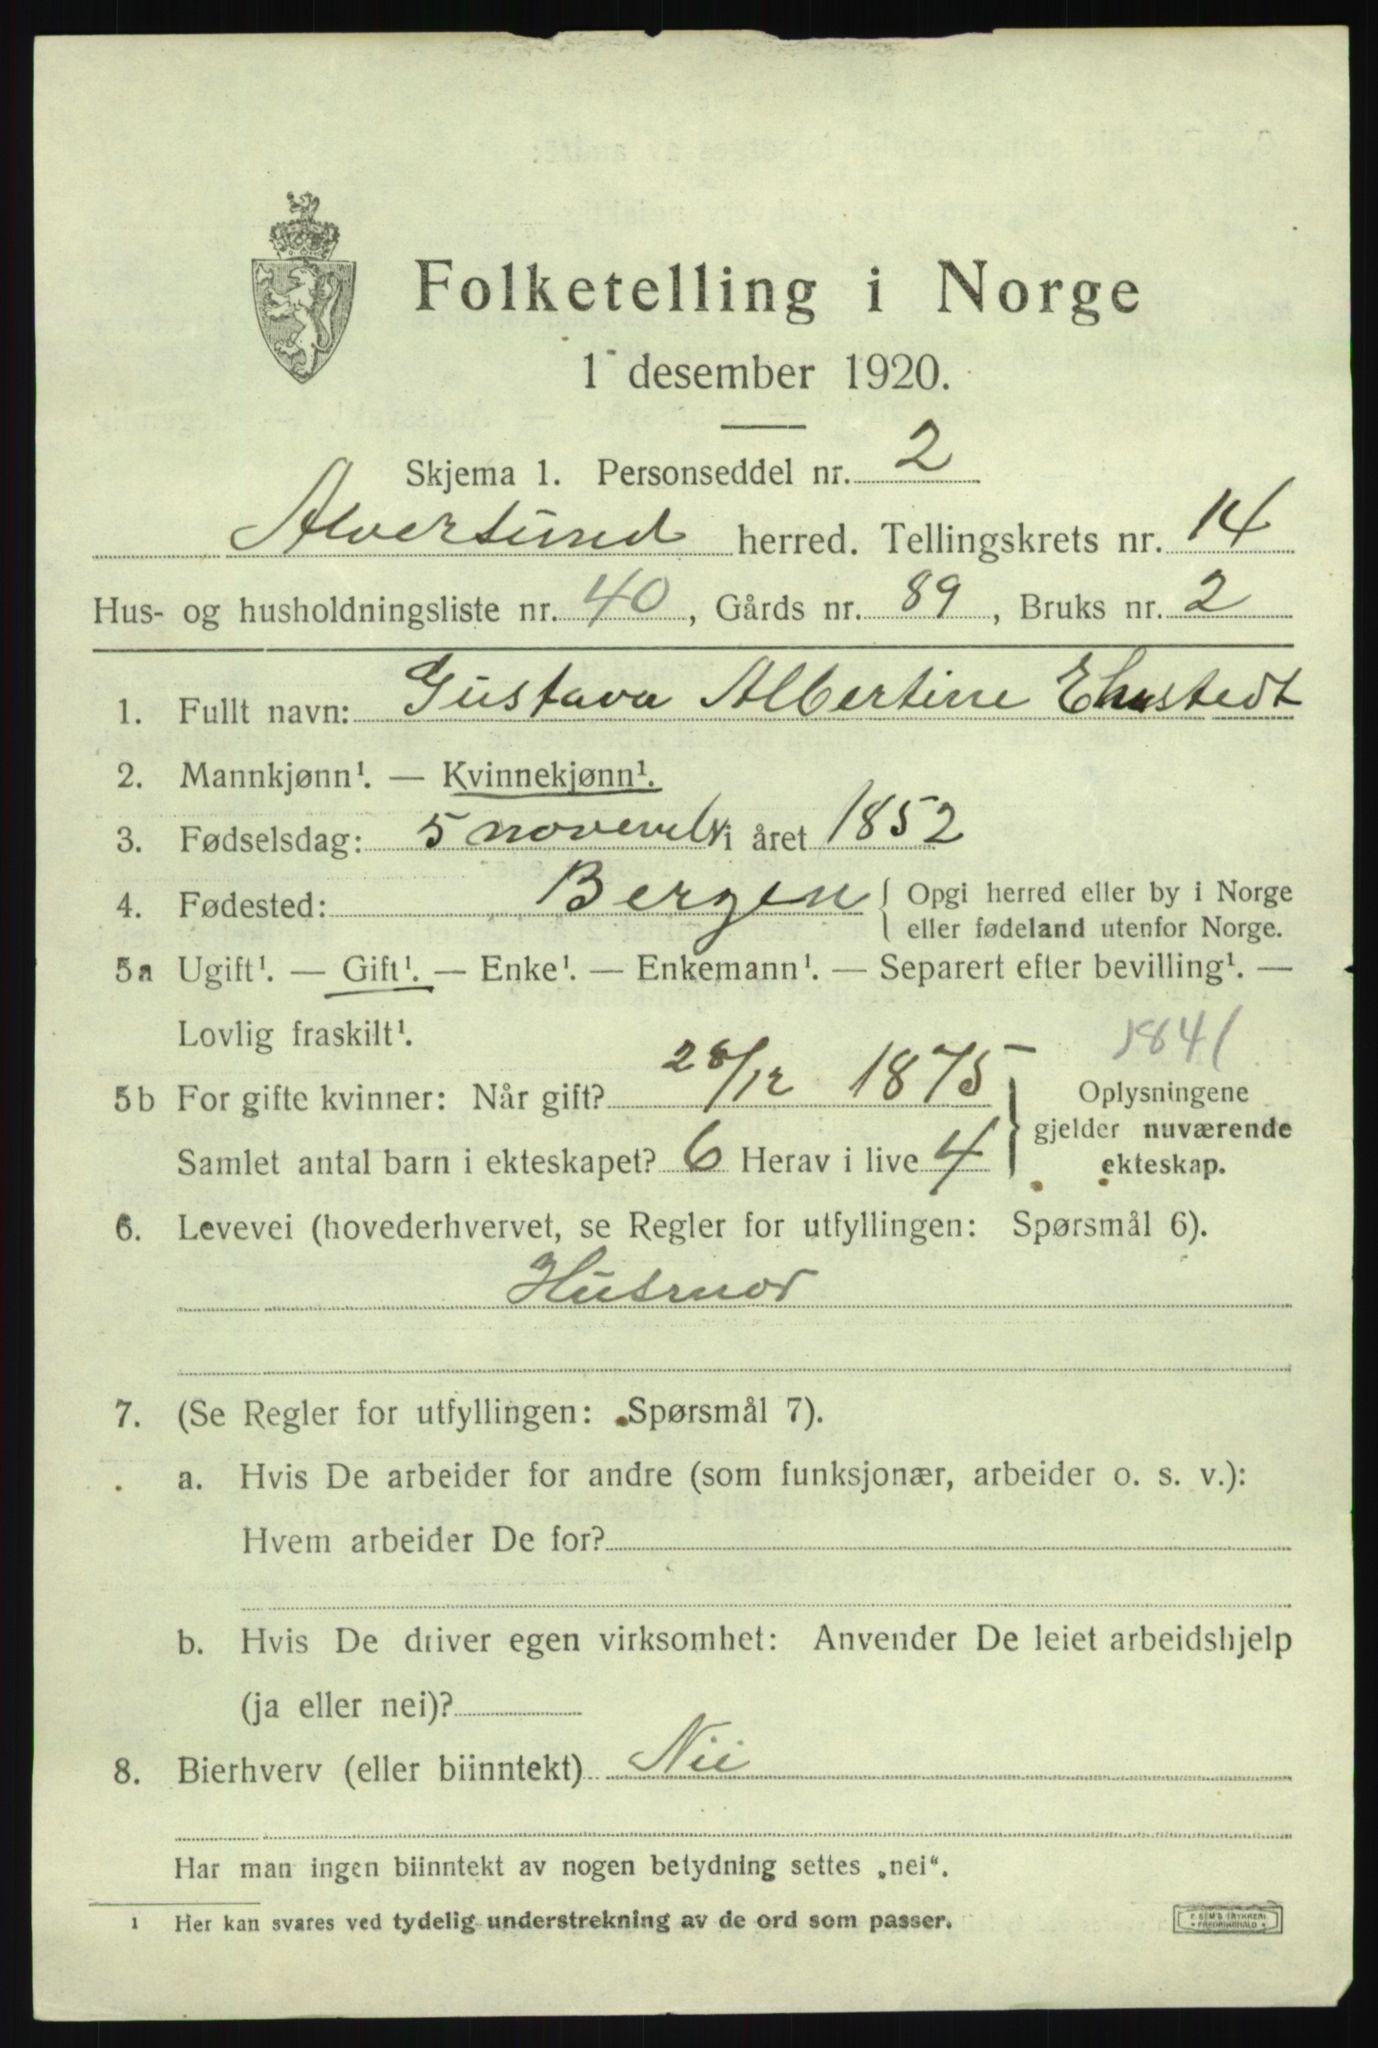 Folketelling i Norge
1 desember 1920.
Skjema 1. Personseddel nr. 2
Alversund herred. Tellingskrets nr. 14
Hus- og husholdningsliste nr. 40, Gårds nr. 89, Bruks nr. 2
1. Fullt navn: Gustava Albertine
2. Mannkjønn¹. — Kvinnekjønn¹.
3. Fødselsdag: 5 november i året 1852
4. Fødested: Bergen { Opgi herred eller by i Norge
eller fødeland utenfor Norge.
5a Ugift¹. — Gift¹. — Enke¹. — Enkemann¹. — Separert efter bevilling¹. —
Lovlig fraskilt¹.
1841
5b For gifte kvinner: Når gift? 28/12 1875 } Oplysningene
gjelder nuværende
Samlet antal barn i ekteskapet? 6 Herav i live 4
ekteskap.
6. Levevei (hovederhvervet, se Regler for utfyllingen: Spørsmål 6).
Husmor
7. (Se Regler for utfyllingen: Spørsmål 7).
a. Hvis De arbeider for andre (som funksjonær, arbeider o. s. v.):
Hvem arbeider De for?
b. Hvis De driver egen virksomhet: Anvender De leiet arbeidshjelp
(ja eller nei)?
8. Bierhverv (eller biinntekt) Nei
Har man ingen biinntekt av nogen betydning settes „nei“.
1 Her kan svares ved tydelig understrekning av de ord som passer.